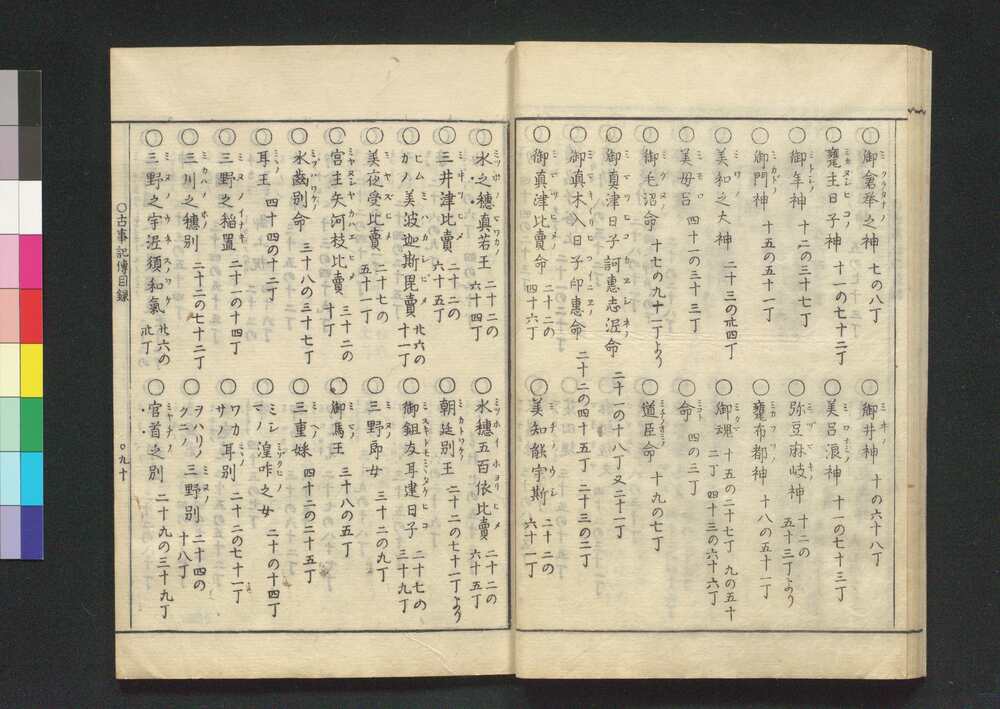 御倉挙之神 七の八丁
御井神 十の六十八丁
甕主日子神 十一の七十二丁
美呂浪神 十一の七十三丁
御年神 十二の三十七丁
弥豆麻岐神 十二の五十三丁より
御門神 十五の五十一丁
甕布都神 十八の五十一丁
美和之大神 二十三の廿四丁
御魂 十五の二十七丁 九の五十二丁 四十三の六十六丁
美毋呂 四十一の三十三丁
命 四の三丁
御毛沼命 十七の九十二丁より
道臣命 十九の七丁
御真津日子訶恵志泥命 二十一の十八丁又二十一丁
御真木入日子印恵命 二十二の四十五丁 二十三の二丁
御真津比賣命 二十二の四十六丁
美知能宇斯 二十二の六十一丁
水之穂真若王 二十二の六十四丁
水穂五百依比賣 二十二の六十五丁
三井津比賣 二十二の六十五丁
朝廷別王 二十二の七十一丁より
ヒムカノ美波迦斯毘賣 廿六の十一丁
御鉏友耳建日子 二十七の三十九丁
美夜受比賣 二十七の五十一丁
三野郎女 三十二の九丁
宮主矢河枝比賣 三十二の十丁
御馬王 三十八の五丁
水歯別命 三十八の三十七丁
三重婇 四十二の二十五丁
耳王 四十四の十二丁
ミマノ湟咋之女 二十の十四丁
三野之稲置 二十一の十四丁
ワカサノ耳別 二十二の七十一丁
三川之穂別 二十二の七十二丁
ヲハリノクニノ三野別 二十四の十八丁
三野之宇泥須和氣 廿六の廿丁
宮首之別 二十九の三十九丁
○古事記傳目録
○九十